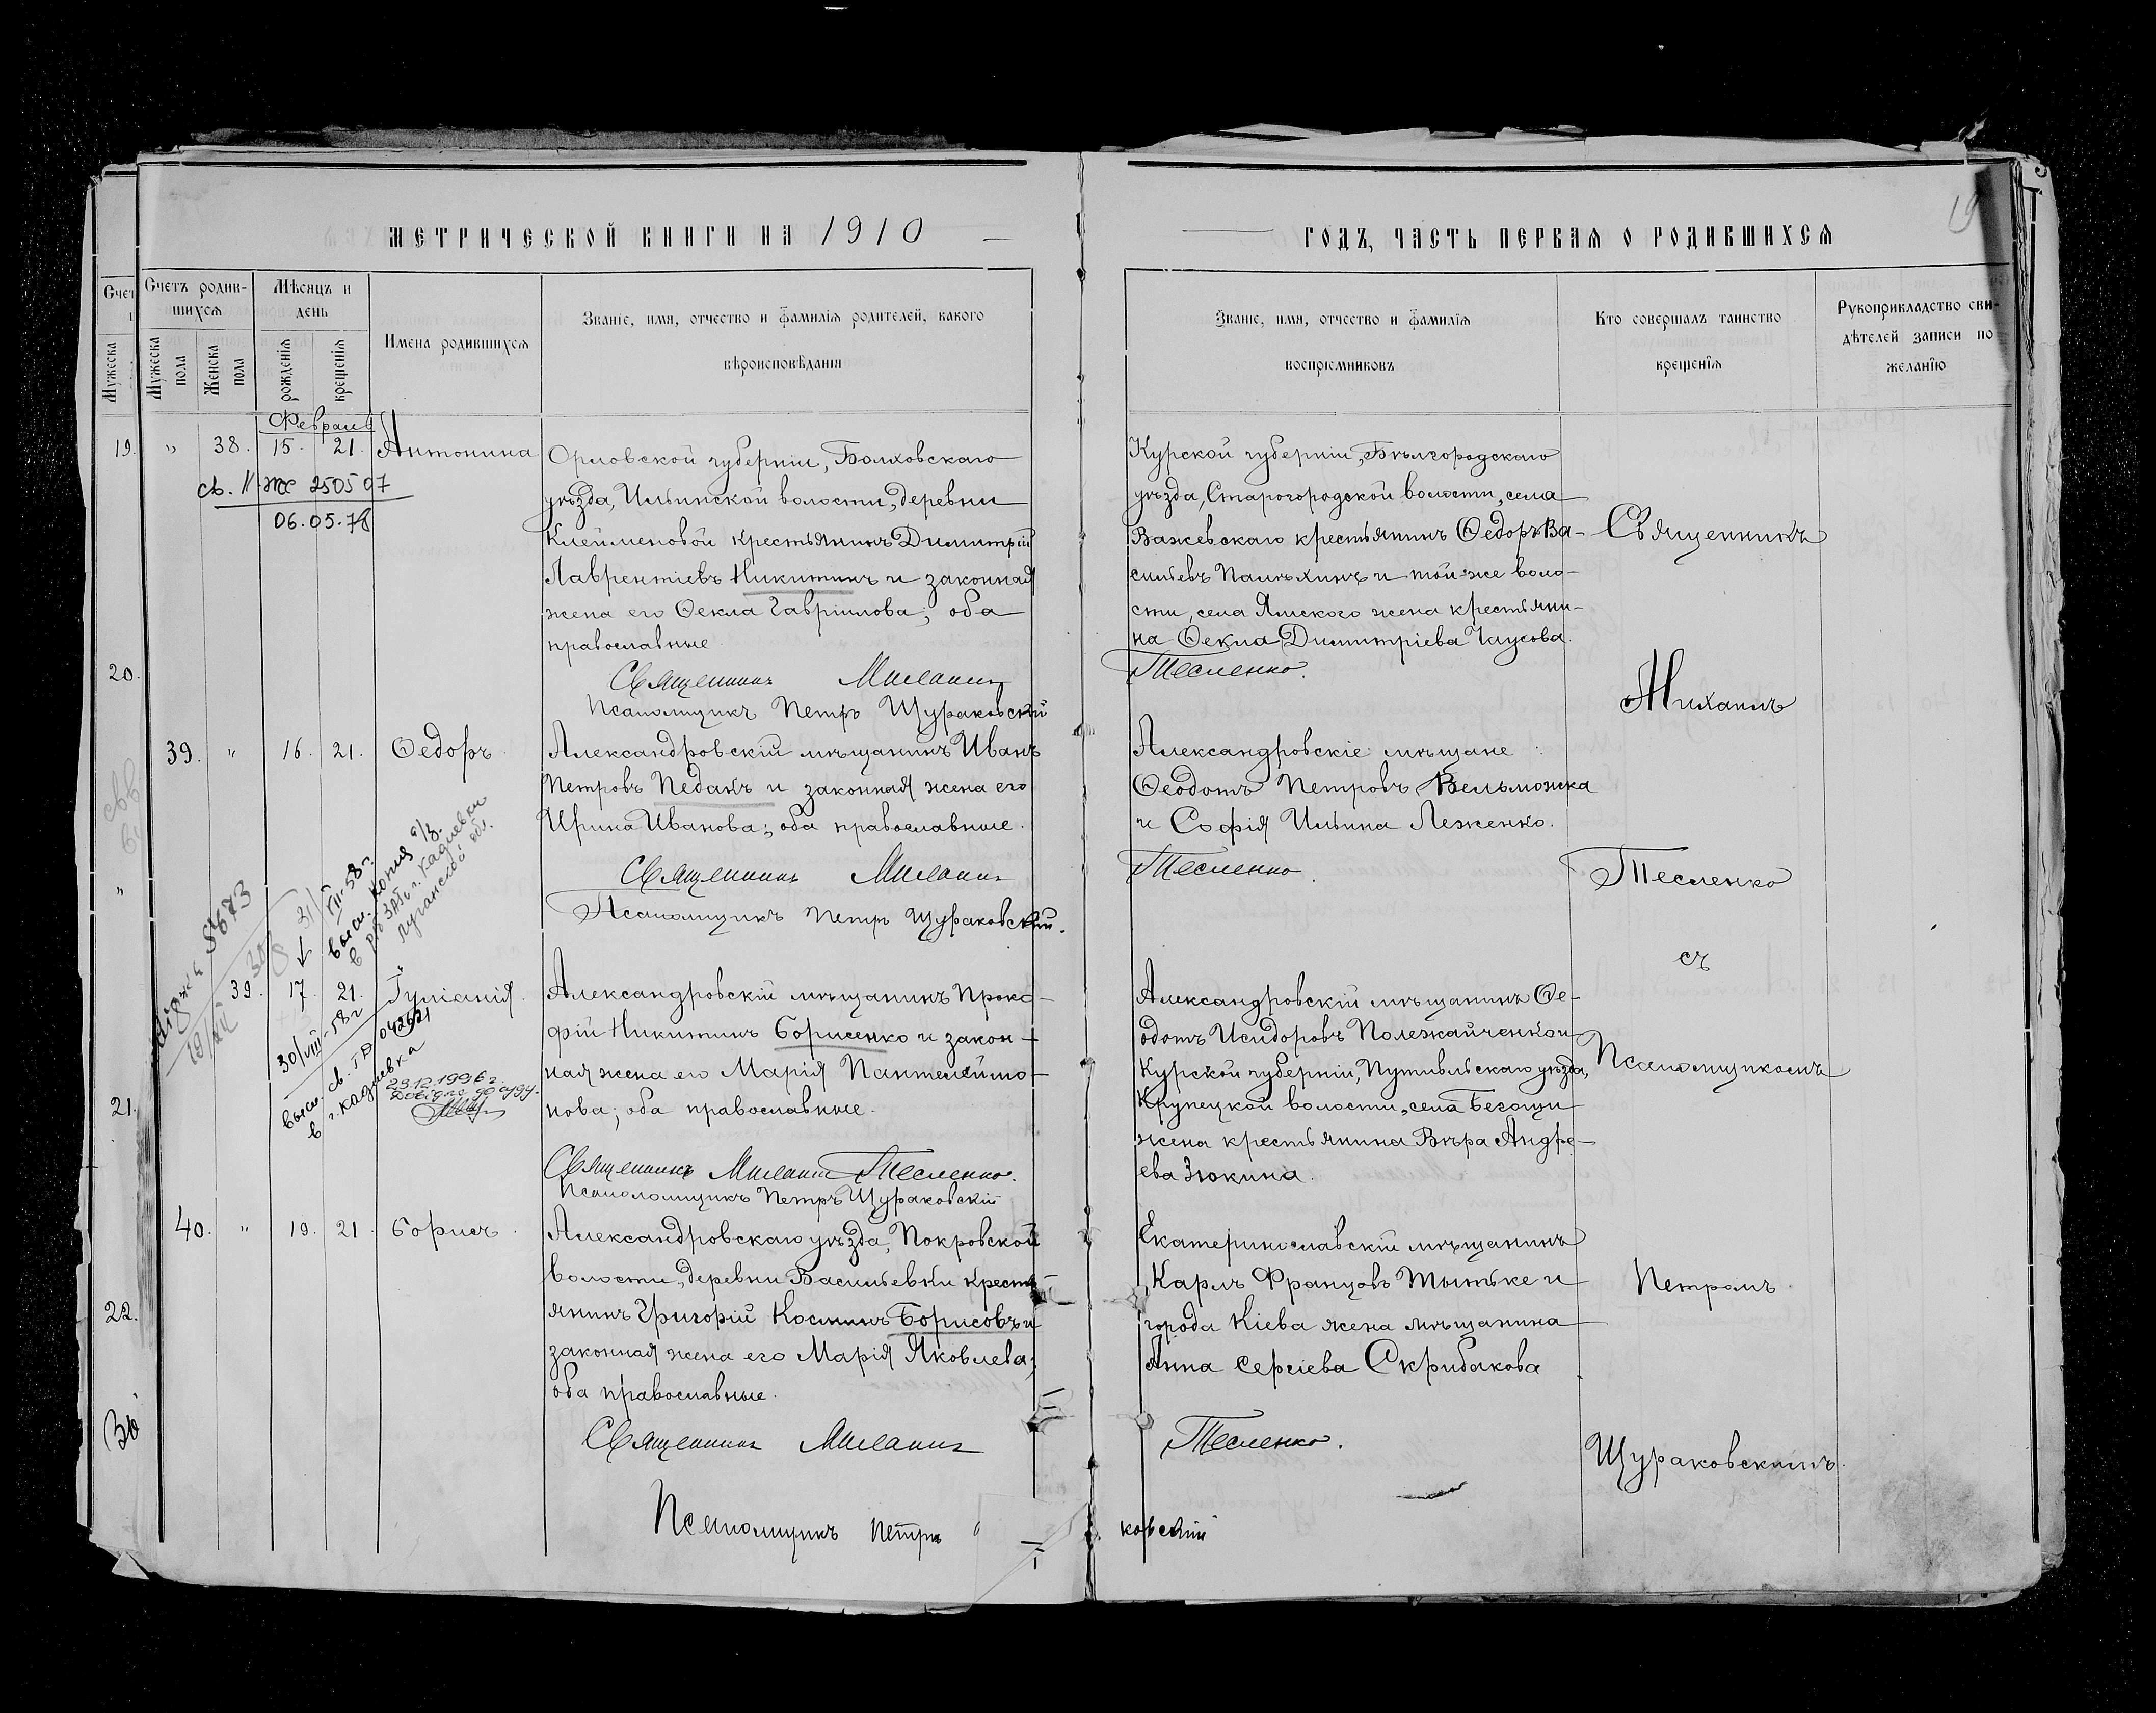 МЕТРИЧЕСКОЙ КНИГИ НА 1910
Счетъ родив-
шихся
Мѣсяцъ и
день
Имена родившихся
Званіе, имя, отчество и фамилія родителей, какого
вѣроисповѣданія
Мужеска
Мужеска
пола
Женска
пола
рожденія
крещенія
Февраль
19.
" 38. 15. 21. Антонина
св. II-жс 250507
06.05.78
Орловской губерніи, Болховскаго
уѣзда, Ильинской волости, деревни
Клейменовой крестьянинъ Димитрій
Лаврентіевъ Никитинъ и законная
жена его Ѳекла Гавріилова; оба
православные
Священникъ Михаилъ
Псаломщикъ Петръ Щураковскій
20.
39. " 16. 21. Ѳедоръ
Александровскій мѣщанинъ Иванъ
Петровъ Педакъ и законная жена его
Ирина Иванова; оба православные.
Священникъ Михаилъ
Псаломщикъ Петръ Щураковскій.
"
31/VIII-58г.
высл. копия
луганской обл.
39. 17. 21. Іуліанія.
30/VIII-58г
высл. св.
в г. Кадиевка
042621
23.12.1996г.
Александровскій мѣщанинъ Проко-
фій Никитинъ Борисенко и закон-
ная жена его Марія Пантелеймо-
нова; оба православные.
Священникъ Михаилъ Тесленко.
Псаломщикъ Петръ Щураковскій
21.
40. " 19. 21. Борисъ
Александровскаго уѣзда, Покровской
волости, деревни Васильевки кресть-
янинъ Григорій Косминъ Борисовъ и
законная жена его Марія Яковлева;
оба православные.
Священникъ Михаилъ
Псаломщикъ Петръ
22.
ГОДЪ, ЧАСТЬ ПЕРВАЯ О РОДИВШИХСЯ
19
Званіе, имя, отчество и фамилія
воспріемниковъ
Кто совершалъ таинство
крещенія
Рукоприкладство сви-
дѣтелей записи по
желанію
Курской губерніи, Бѣлгородскаго
уѣзда, Старогородской волости, села
Важевскаго крестьянинъ Ѳедоръ Ва-
сильевъ Палѣхинъ и той-же воло-
сти, села Ямского жена крестьяни-
на Ѳекла Димитріева Чаусова.
Тесленко.
Александровскіе мѣщане
Ѳеодотъ Петровъ Вельможка
и Софія Ильина Леженко.
Тесленко.
Александровскій мѣщанинъ Ѳе-
одотъ Исидоровъ Полежайченко и
Курской губерніи, Путивльскаго уѣзда,
Крупецкой волости, села Бегощи
жена крестьянина Вѣра Андре-
ева Зюкина.
Екатеринославскій мѣщанинъ
Карлъ Францовъ Тытьке и
города Кіева жена мѣщанина
Анна Сергіева Скрибакова
Тесленко.
ковскій
Священникъ
Михаилъ
Тесленко
съ
Псаломщикомъ
Петромъ
Щураковскимъ.